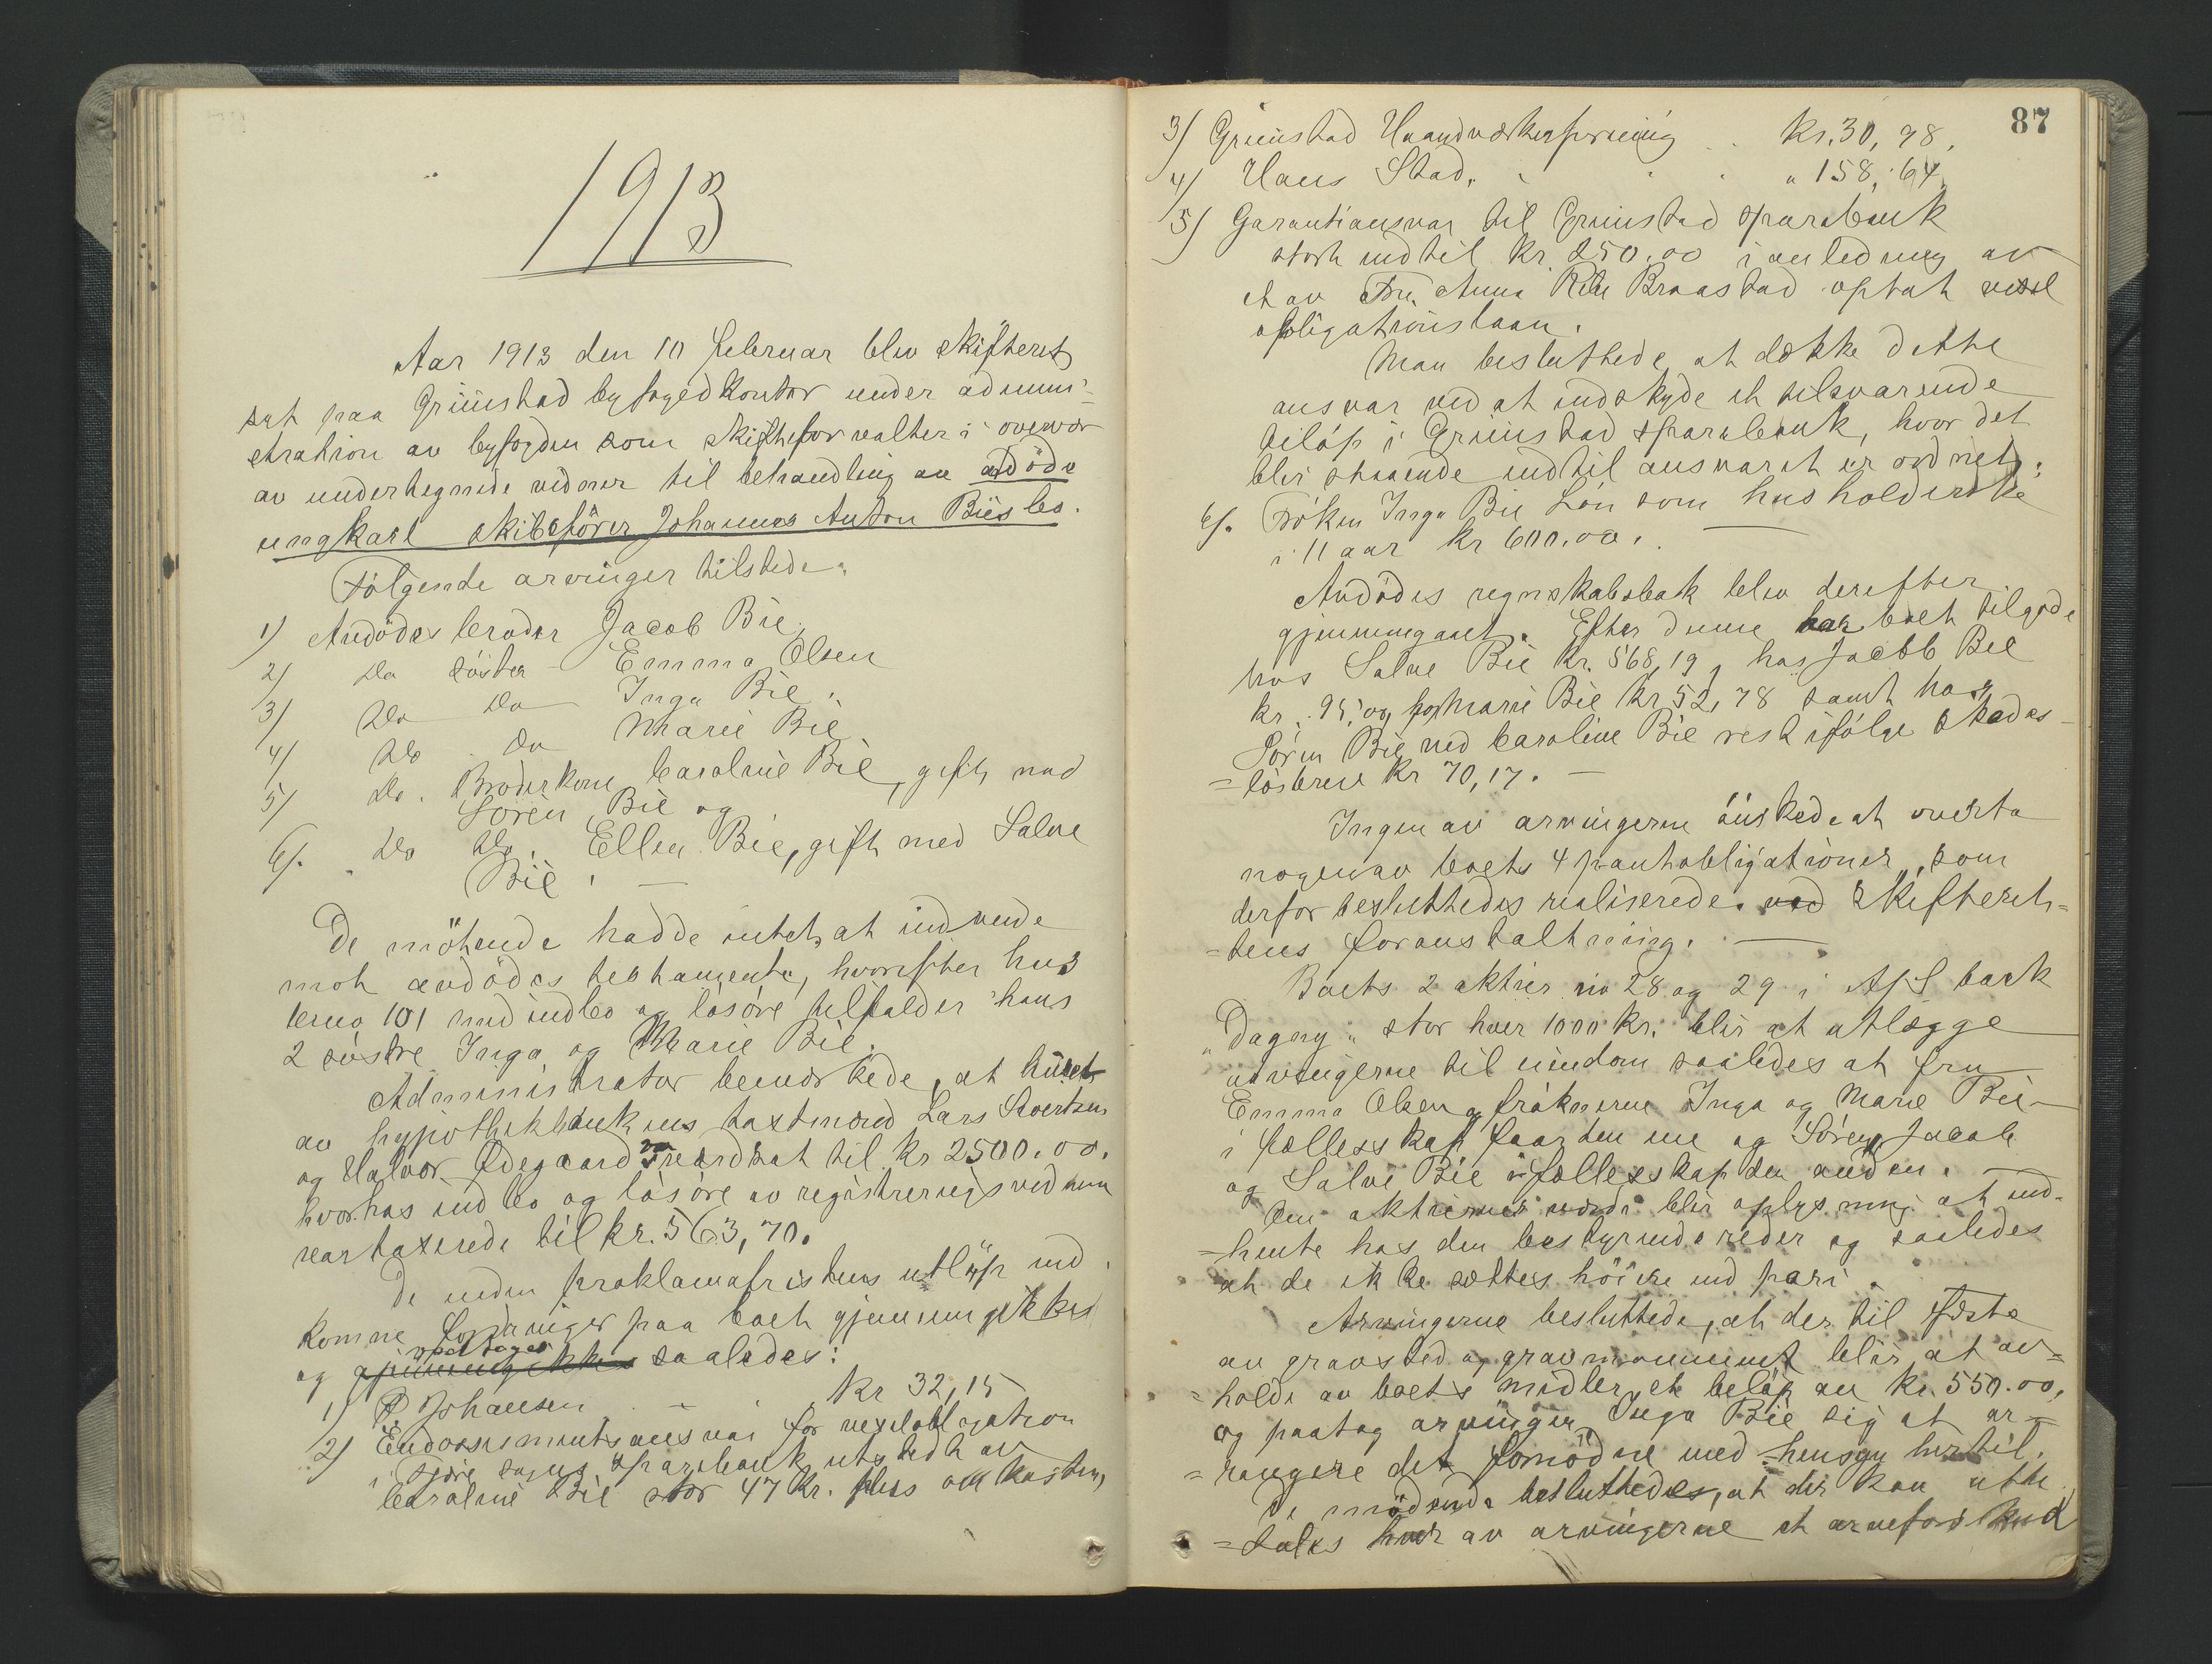 1913
Aar 1913 den 10 februar blev skifteret
sat paa Grimstad byfogedkontor under admini-
stration av byfogden som skifteforvalter i overvær
av undertegnede vidner til behandling av avdöde
ungkarl skibsförer Johannes Anton Bies bo.
Følgende arvinger tilstede:
1) Avdödes broder Jacob Bie.
2) Do söster Emma Olsen
3) Do Do Inga Bie.
4) Do Do Marie Bie
5) Do. Broderkone Caroline Bie, gift med
Sören Bie og
6). Do Do. Ellen Bie, gift med Salve
Bie.
De mötende hadde intet at indvende
mot avdödes testamente, hvorefter hus
brno 101 med indbo og lösöre tilfalder hans
2 söstre Inga og Marie Bie.
Administrator bemerkede, at huset
av hypothekbankens takstmænd Lars Sivertsen
og Halvor Ødegaard var værdsat til kr 2500.00.
hvorhos indbo og lösöre av registreringsvidnene
var taxerede til kr. 563,70.
De inden proklamafristens utlöp ind-
komne fordringer paa boet gjennemgikkes
og gjennemgikkes vedtoges saaledes:
1) P. Johansen kr 32,15
2) Endossementsansvar for vexelobligation
i Fjære sogns sparebank utstedt av
Caroline Bie stor 47 kr. pluss omkostn,
87
3) Grimstad Haandværkerforening .. kr. 30,98.
4) Hans Stad. " 158,64.
5) Garantiansvar til Grimstad sparebank
stort indtil kr. 250.00 i anledning av
et av Fru Anna Braastad optat vexel
obligationslaan.
Man besluttede at dække dette
ansvar ved at indskyde et tilsvarende
belöp i Grimstad sparebank, hvor det
blir staaende indtil ansvaret er ordnet.
6). Fröken Inga Bie Lön som husholderske
i 11 aar kr 600.00.
Avdödes regnskabsbok blev derefter
gjennemgaaet. Efter denne har boet tilgode
hos Salve Bie kr. 568,19, hos Jacob Bie
kr. 95, og hos Marie Bie kr 52,78 samt hos
Sören Bie ved Caroline Bie rest ifölge skades-
=lösbrev kr 70,17.
Ingen av arvingerne önskede at overta
nogen av boets 4 pantobligationer, som
derfor besluttedes realiserede ved skifteret-
=tens foranstaltning.
Boets 2 aktier no 28 og 29 i A/S bark
"Dagny" stor hver 1000 kr. blir at utlægge
arvingerne til eiendom saaledes at fru
Emma Olsen og fröknerne Inga og Marie Bie
i fællesskap faar den ene og Sören, Jacob
og Salve Bie i fællesskap den anden.
Om aktiernes værdi blir oplysning at ind-
=hente hos den bestyrende reder og saaledes
at de ikke sættes höiere end pari.
Arvingerne besluttede, at der til fæste
av gravsted og gravmonument blir at av=
=holde av boets midler et belöp av kr. 550.00,
og paatog arvingen Inga Bie sig at ar-
=rangere det fornödne med hensyn hertil.
De mödende besluttedes, at der kan utbe-
=tales hver av arvingerne et arveforskud